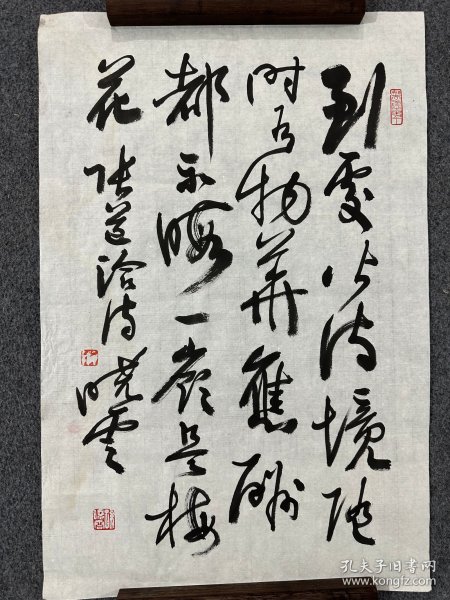 到處皆詩境隨
時有物華應酬
都不暇一嶺是梅
花 張道洽詩 曉雲
孔夫子旧书网
www.kongfz.com